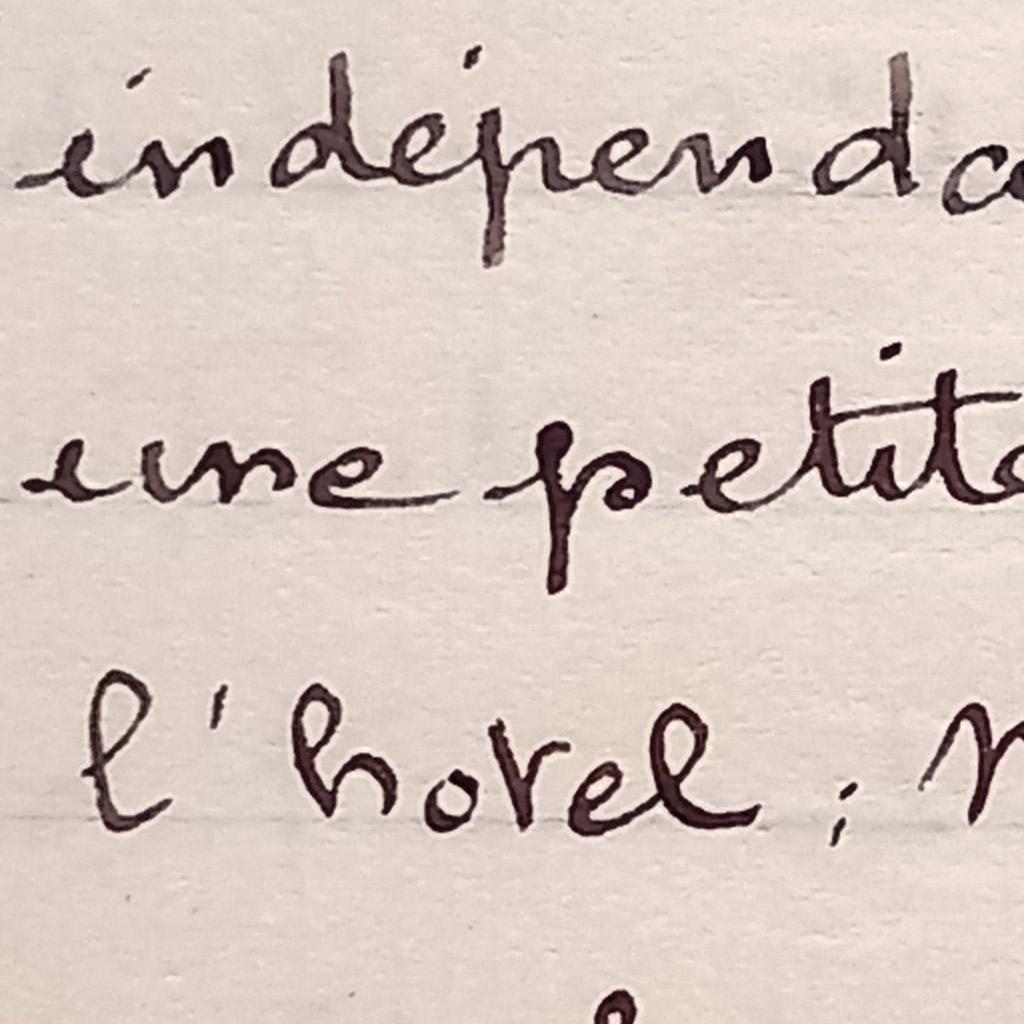 indépenda
une petite
l'hotel ; n